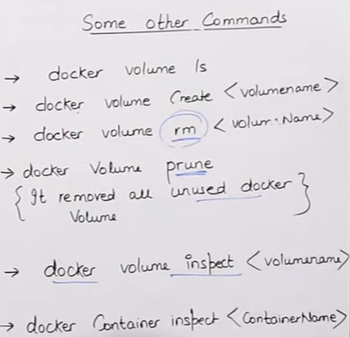 Some other Commands
→ docker volume ls
→ docker volume Create <volumename>
→ docker volume rm <volum.Name>
→ docker Volume prune
{ It removed all unused docker }
Volume
→ docker volume inspect <volumename>
→ docker Container inspect <ContainerName>